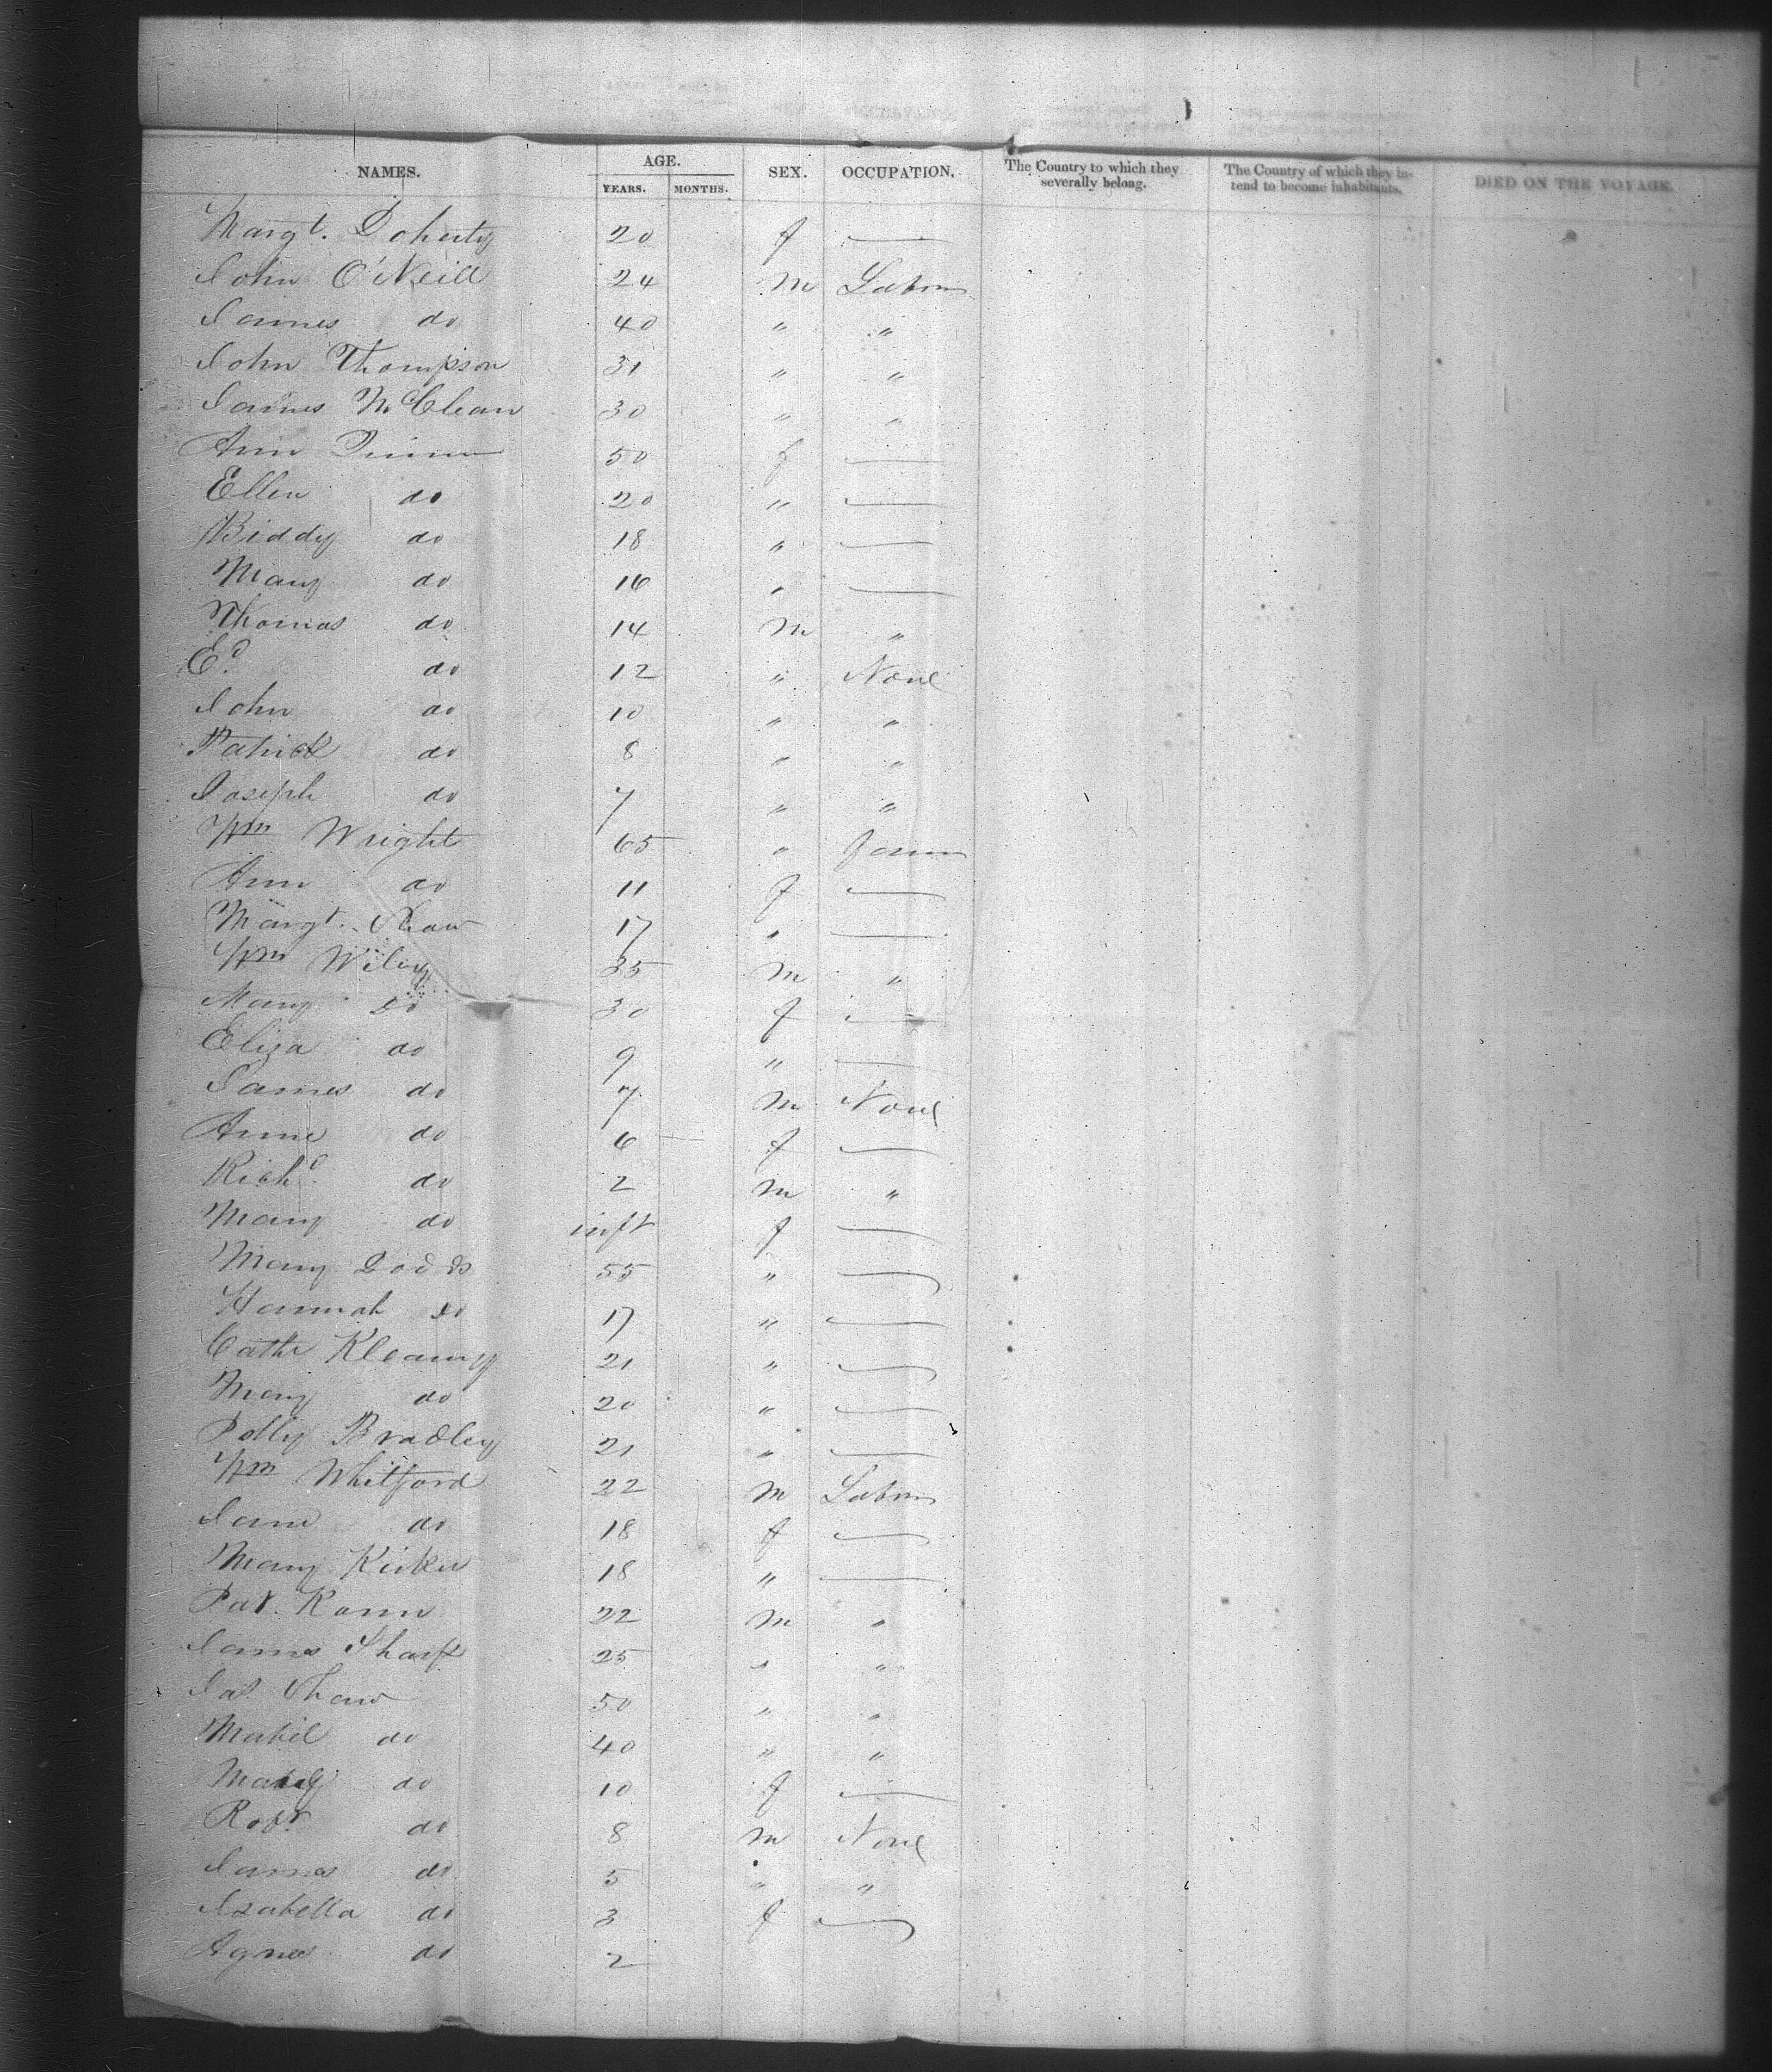 NAMES. AGE. YEARS. MONTHS. SEX. OCCUPATION. The Country to which they severally belong. The Country of which they intend to become inhabitants. DIED ON THE VOYAGE.
Margt. Doherty 20 f —
John O'Neill 24 M Labour
James do 40 " "
John Thompson 31 " "
James McClean 30 " "
Ann 50 f —
Ellen do 20 " —
Biddy do 18 " —
Mary do 16 " —
Thomas do 14 M "
Ed. do 12 " None
John do 10 " "
Patrick do 8 " "
Joseph do 7 " "
Wm Wright 65 " Farm
Ann do 11 f —
Margt. Shaw 17 " —
Wm Wiley 35 M "
Mary do 30 f —
Eliza do 9 " —
James do 7 M None
Anne do 6 f —
Richd. do 2 M "
Mary do inft f —
Mary Dodds 55 " —
Hannah do 17 " —
Cathe 21 " —
Mary do 20 " —
Polly Bradley 21 " —
Wm Whitford 22 M Labour
Jane do 18 f —
Mary Kirker 18 " —
Pat. Kann 22 M "
James Sharp 25 " "
Jas. Shaw 50 " "
Mabel do 40 " "
do 10 f —
Robt. do 8 M None
James do 5 " "
Isabella do 3 f —
Agnes do 2